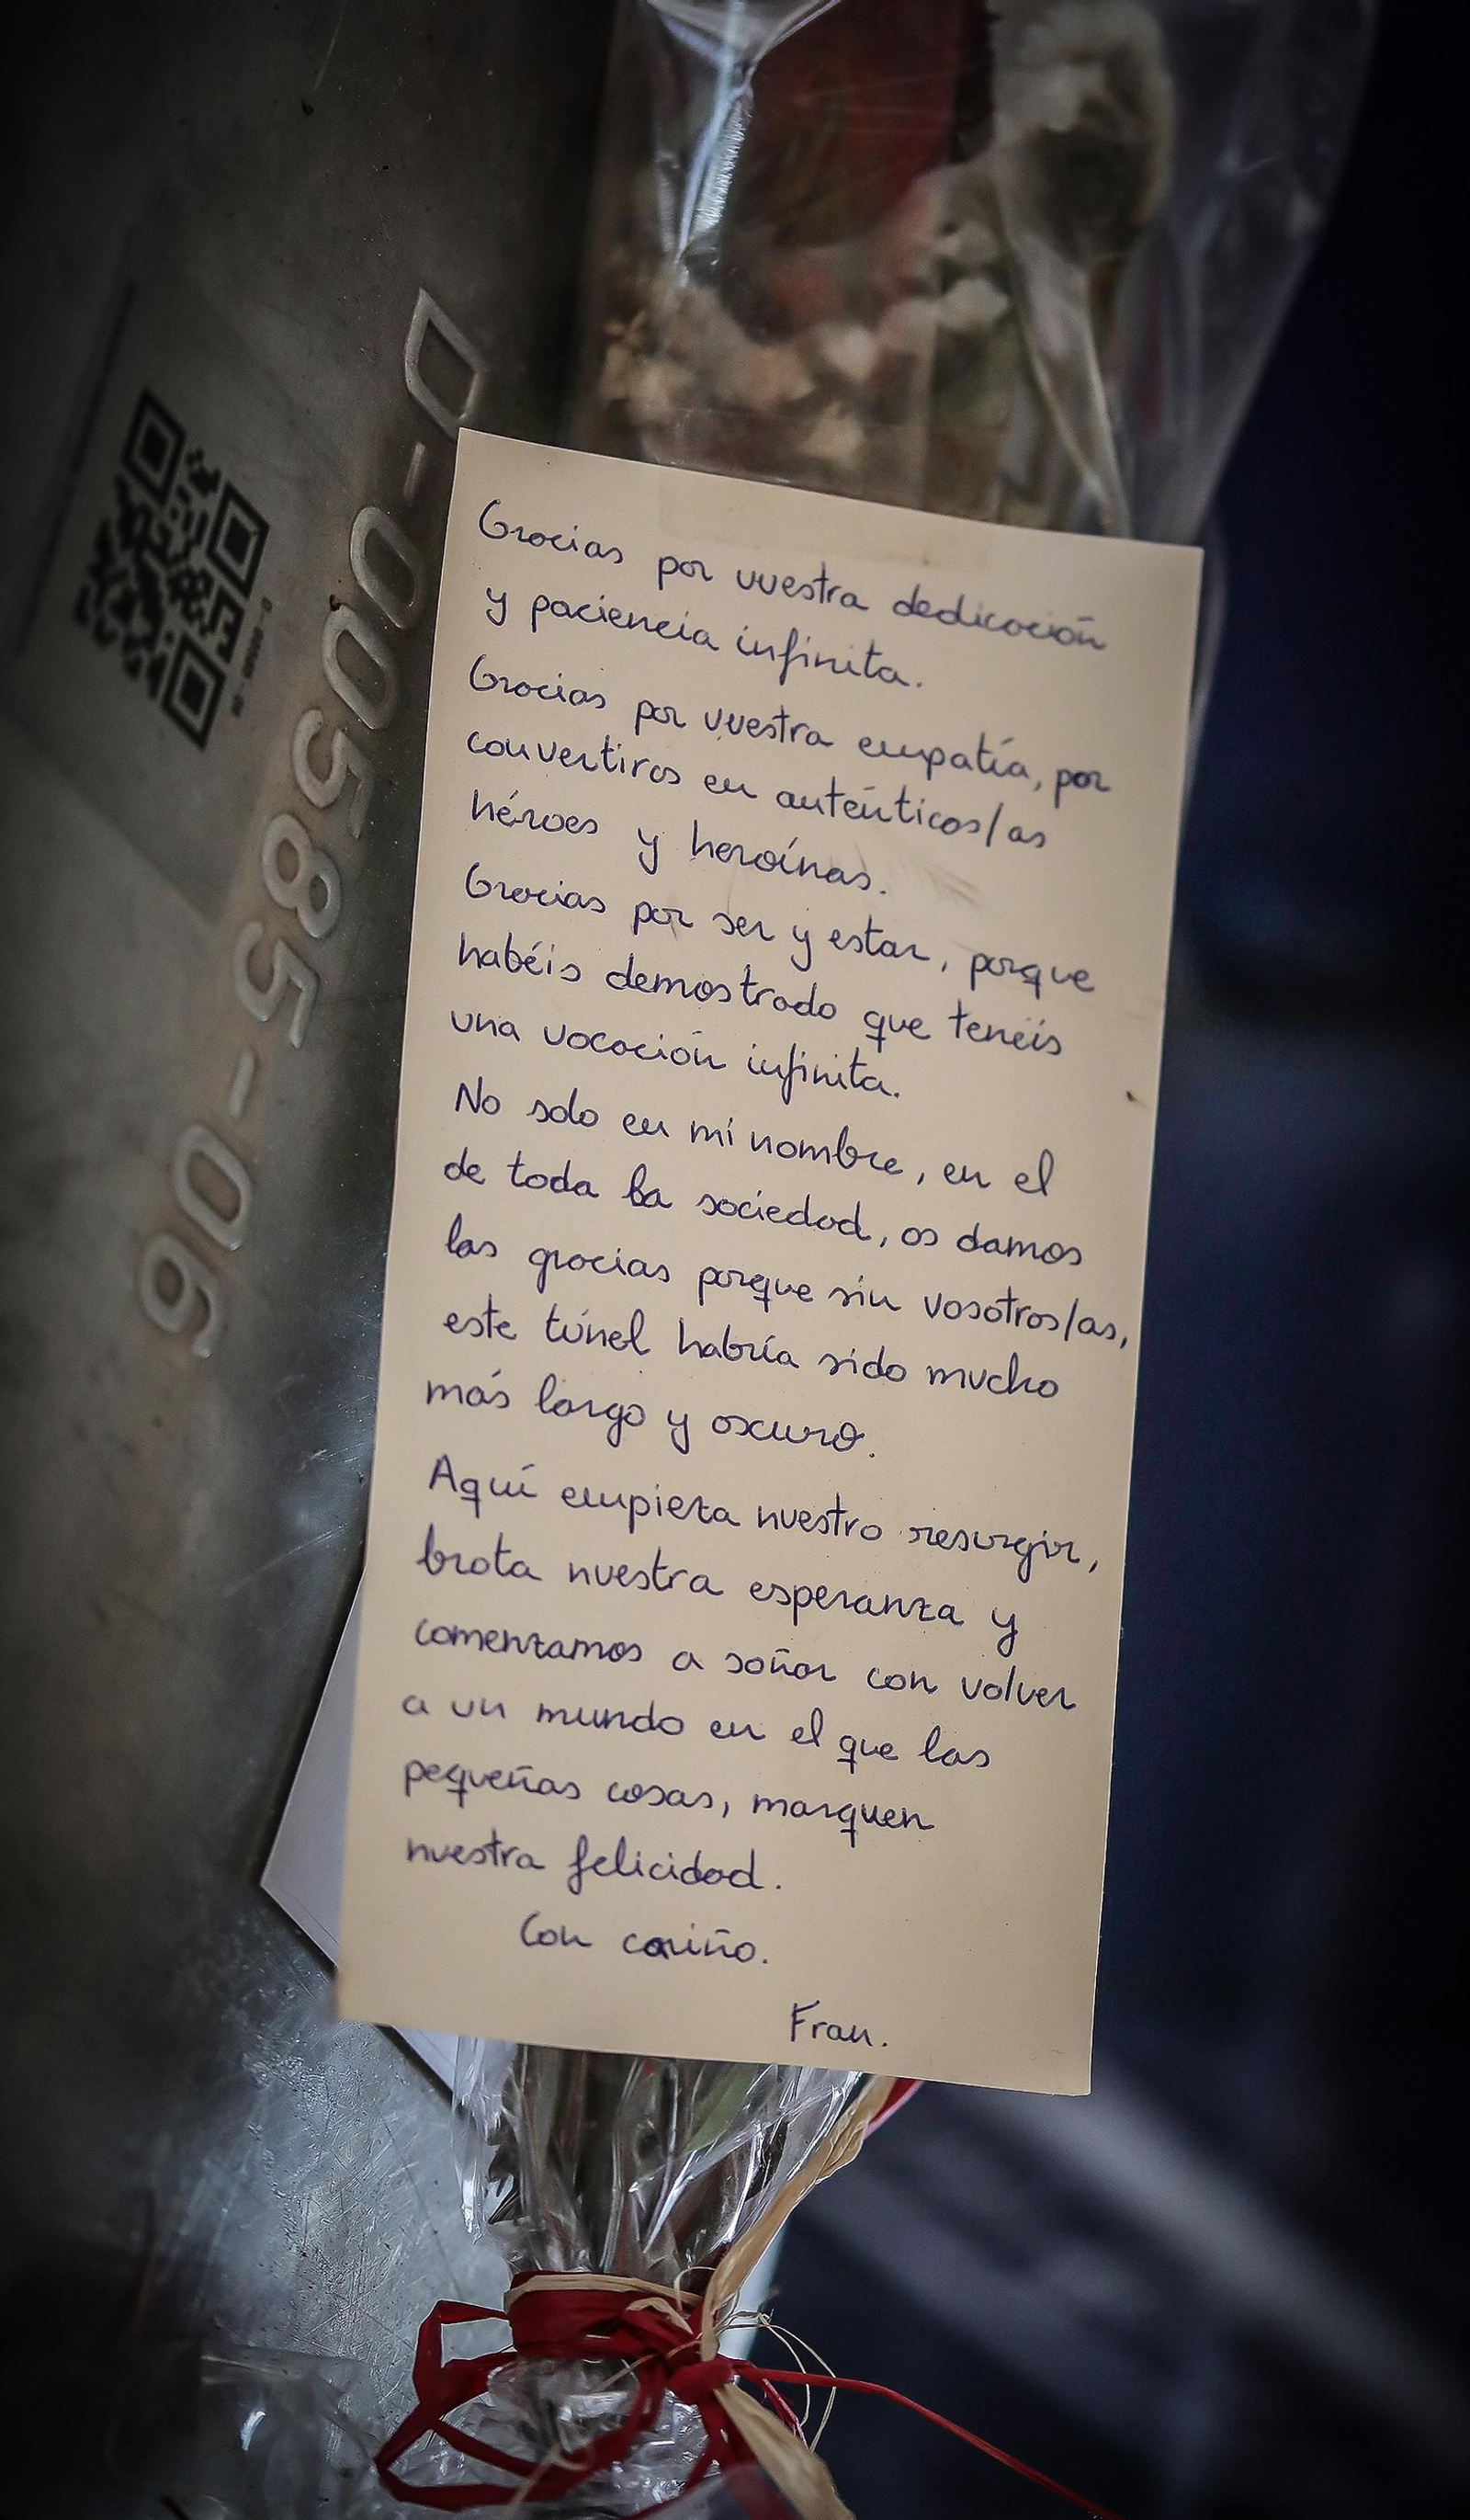 Gracias por vuestra dedicación
y paciencia infinita.
Gracias por vuestra empatía, por
convertiros en auténticos/as
héroes y heroínas.
Gracias por ser y estar, porque
habéis demostrado que tenéis
una vocación infinita.
No solo en mi nombre, en el
de toda la sociedad, os damos
las gracias porque sin vosotros/as,
este túnel habría sido mucho
más largo y oscuro.
Aquí empieza nuestro resurgir,
brota nuestra esperanza y
comenzamos a soñar con volver
a un mundo en el que las
pequeñas cosas, marquen
nuestra felicidad.
Con cariño.
Fran.
90-58500-D